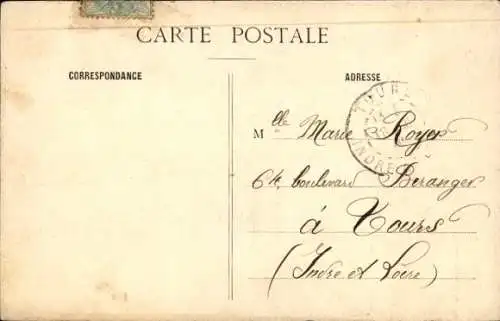 CARTE POSTALE
CORRESPONDANCE
ADRESSE
TOURS
INDRE
Mlle Marie Royer
boulevard Beranger
à Tours
(Indre et Loire)